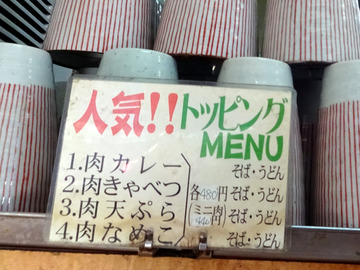 人気!!トッピング
MENU
1.肉カレー そば・うどん
2.肉きゃべつ 各480円 そば・うどん
3.肉天ぷら ミニ肉440 そば・うどん
4.肉なめこ そば・うどん